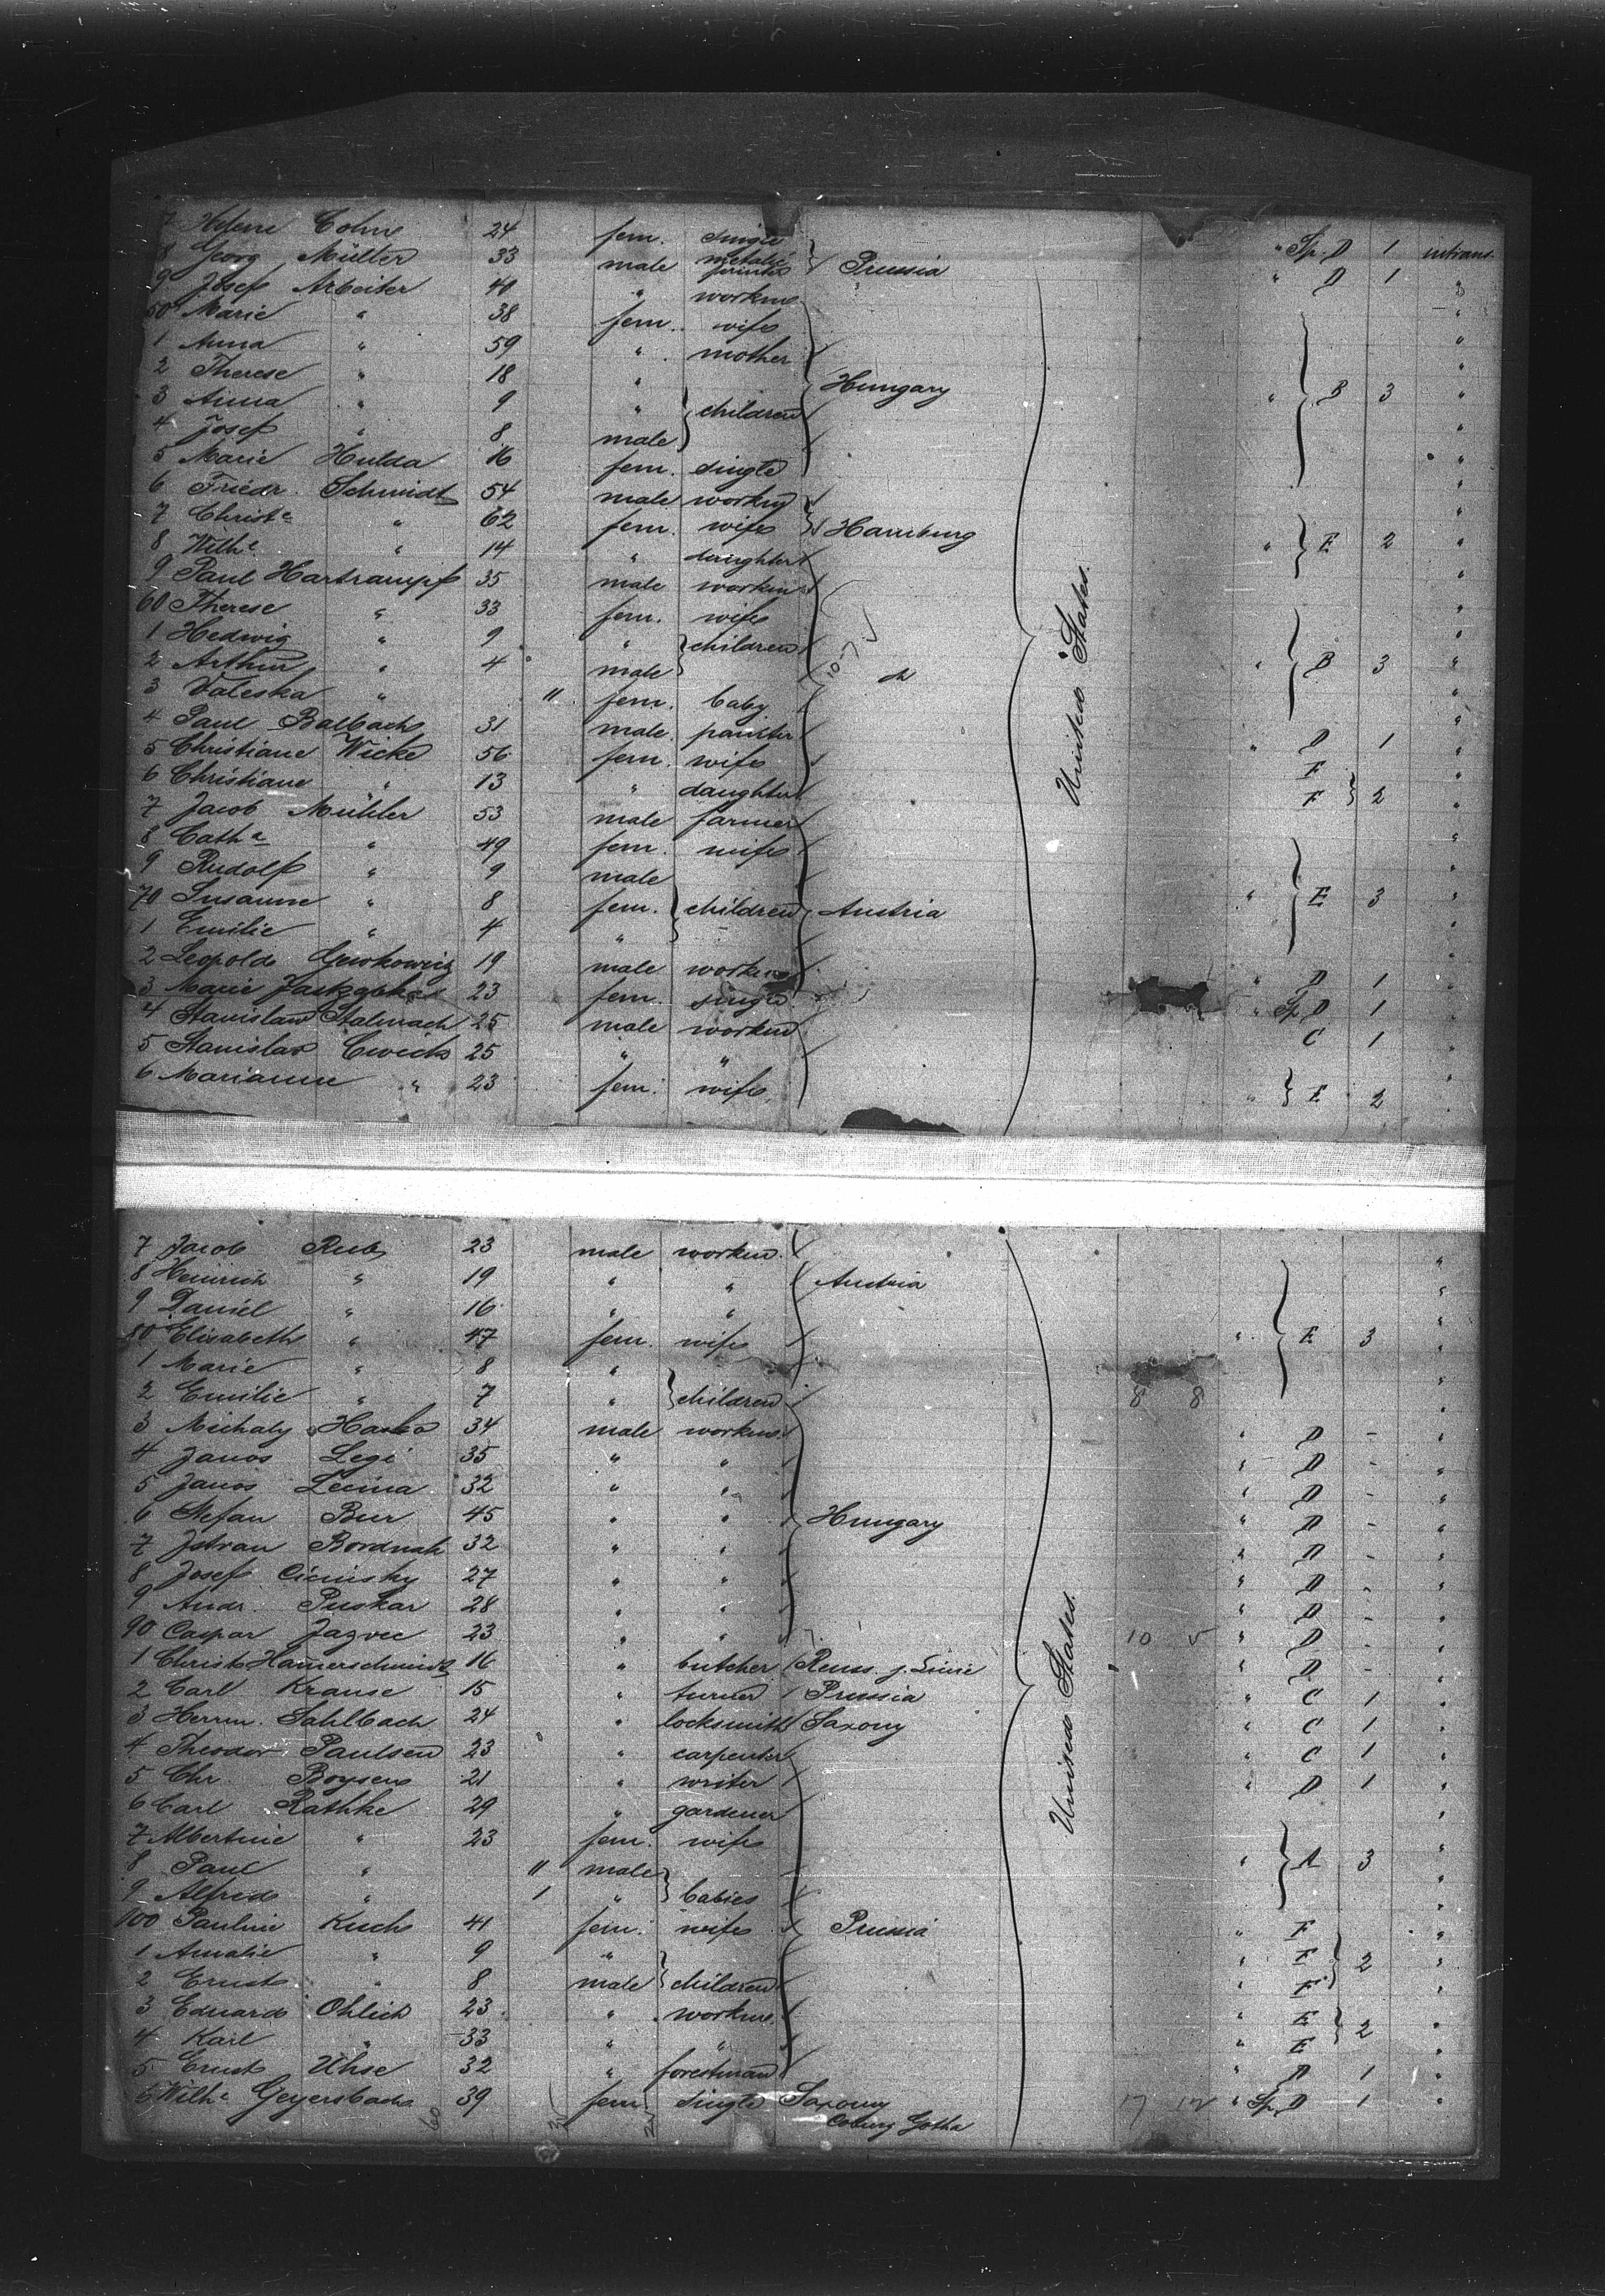 7 Helene Cohn 24 fem. single " Sp. D 1 intrans.
8 Georg Müller 33 male metalic printer Prussia " D 1 "
9 Josef Arbeiter 40 " workm. "
50 Marie " 38 fem. wife "
1 Anna " 59 " mother "
2 Therese " 18 " Hungary "
3 Anna " 9 " children " B 3 "
4 Josef " 8 male "
5 Marie Hulda 16 fem. single "
6 Friedr. Schmidt 54 male workm "
7 Christe " 62 fem. wife Hamburg " E 2 "
8 Wilhe " 14 " daughter "
9 Paul Hartrampf 35 male workm "
60 Therese " 33 fem. wife "
1 Hedwig " 9 " children "
2 Arthur " 4 male " B 3 "
3 Valeska " 11 fem. baby "
4 Paul Balbach 31 male painter " D 1 "
5 Christiane Wicke 56 fem. wife F "
6 Christiane " 13 " daughter F 2 "
7 Jacob Mühler 53 male farmer "
8 Catha " 49 fem. wife "
9 Rudolf " 9 male "
70 Susanne " 8 fem. children Austria " E 3 "
1 Emilie " 4 " "
2 Leopold 19 male workm " D 1 "
3 Marie 23 fem. single " Sp. D 1 "
4 Stanislaw Stalmach 25 male workm C 1 "
5 Stanislav 25 " " "
6 Marianne " 23 fem. wife " E 2 "
United States.
7 Jacob Rub 23 male workm. "
8 Heinrich " 19 " " Austria "
9 Daniel " 16 " " "
80 Elisabeth " 47 fem. wife " E 3 "
1 Marie " 8 " "
2 Emilie " 7 " children 8 8 "
3 Michaly 34 male workm. " D - "
4 Janos Legi 35 " " " D - "
5 Janos 32 " " " D - "
6 Stefan Bur 45 " " Hungary " D - "
7 Istvan Bordnak 32 " " " D - "
8 Josef 27 " " " D - "
9 Andr. Puskar 28 " " " D - "
90 Caspar Jazvec 23 " " 10 " D - "
1 Christ. Hamerschmidt 16 " butcher Reuss. j. Linie " D - "
2 Carl Krause 15 " turner Prussia " C 1 "
3 Herrm. Sahlbach 24 " locksmith Saxony " C 1 "
4 Theodor Paulsen 23 " carpenter " C 1 "
5 Chr. Boysen 21 " writer " D 1 "
6 Carl Rathke 29 " gardener "
7 Albertine " 23 fem. wife "
8 Paul " 11 male " A 3 "
9 Alfred " 1 " babies "
100 Pauline Kuch 41 fem. wife Prussia " F "
1 Amalie " 9 " " F 2 "
2 Ernst " 8 male children " F "
3 Eduard Ohlich 23 " workm. " E 2 "
4 Karl " 33 " " " E "
5 Ernst Uhse 32 " forestman " D 1 "
6 Wilhe Geyersbach 39 fem. single Saxony 17 12 " Sp. D 1 "
Coburg Gotha
United States.